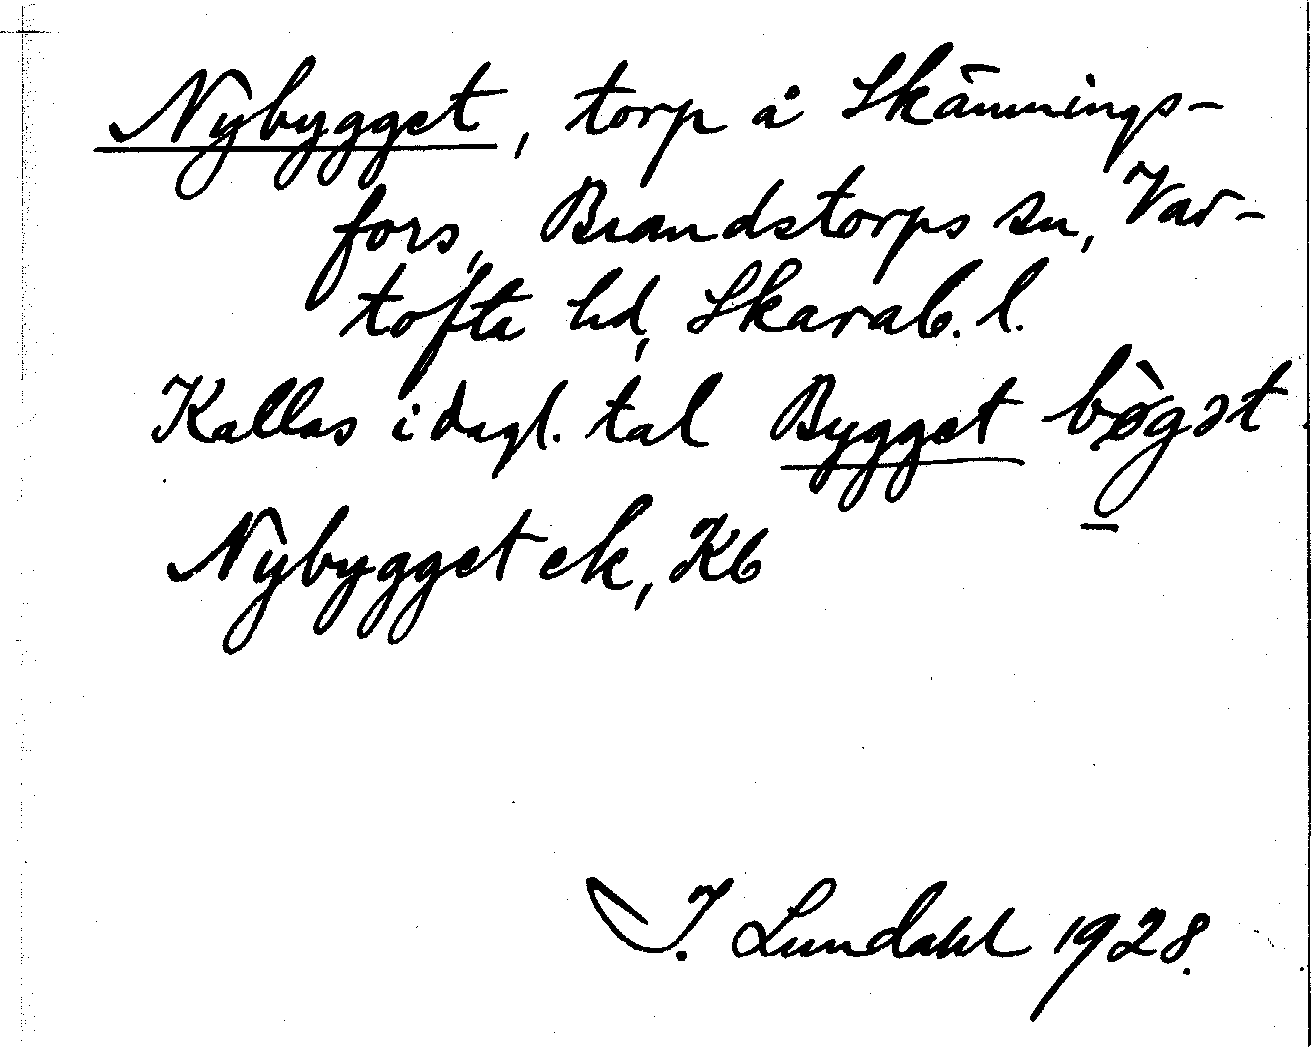 Nybygget, torp å Skämnings-
fors, Brandstorps sn, Var-
tofta hd, Skarab. l.
Kallas i dagl. tal Bygget bø̀gət
Nybygget ek, Kb
I. Lundahl 1928.